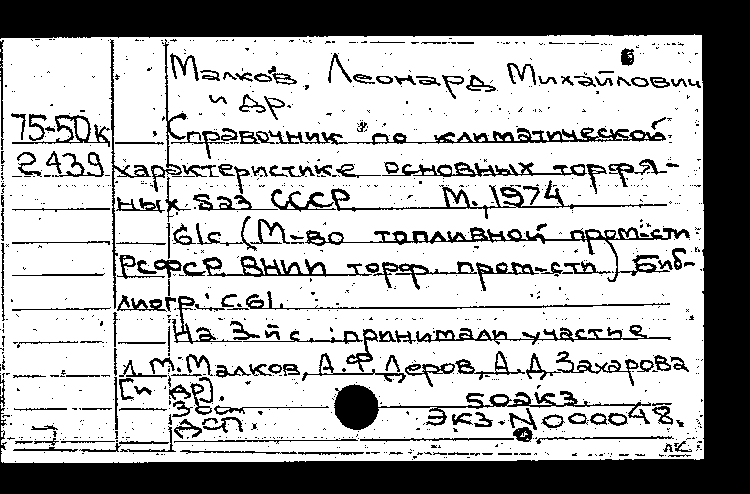 Малков, Леонард Михайлович
и др.
75-50к Справочник по климатической
2439 характеристике основных торфя-
ных баз СССР. М., 1974.
61с. (М-во топливной пром-сти
РСФСР. ВНИИ торф. пром-сти). Биб-
лиогр.: с.61.
На 3-й с.: принимали участье
Л.М. Малков, А.Ф. Деров, А.Д. Захарова
[и др].
50экз.
ДСП. Экз. N 000048.
лк